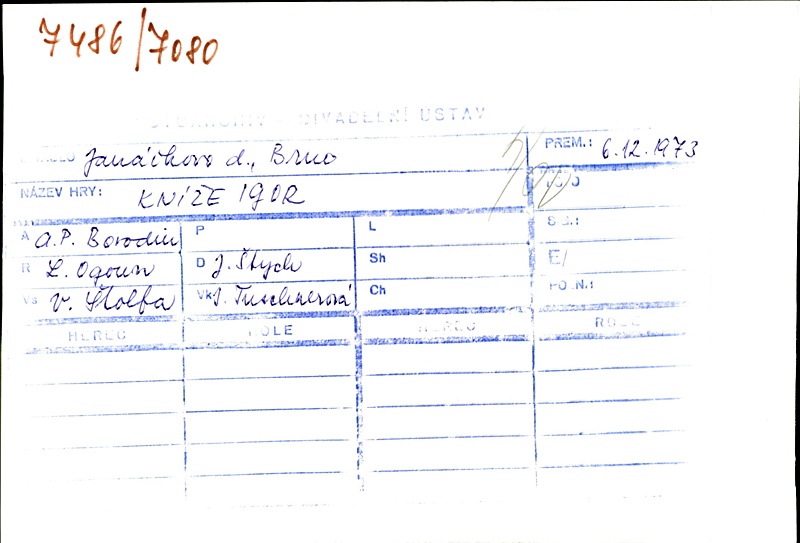 7486/7080
DIVADELNÍ ÚSTAV
Janáčkovo d., Brno
PREM.: 6.12.1973
NÁZEV HRY: KNÍŽE IGOR
A A.P. Borodin P L
R L. Ogoun D J. Štych Sh
Vs V. Štolfa Vk J. Tuschnerová Ch
HEREC ROLE HEREC ROLE